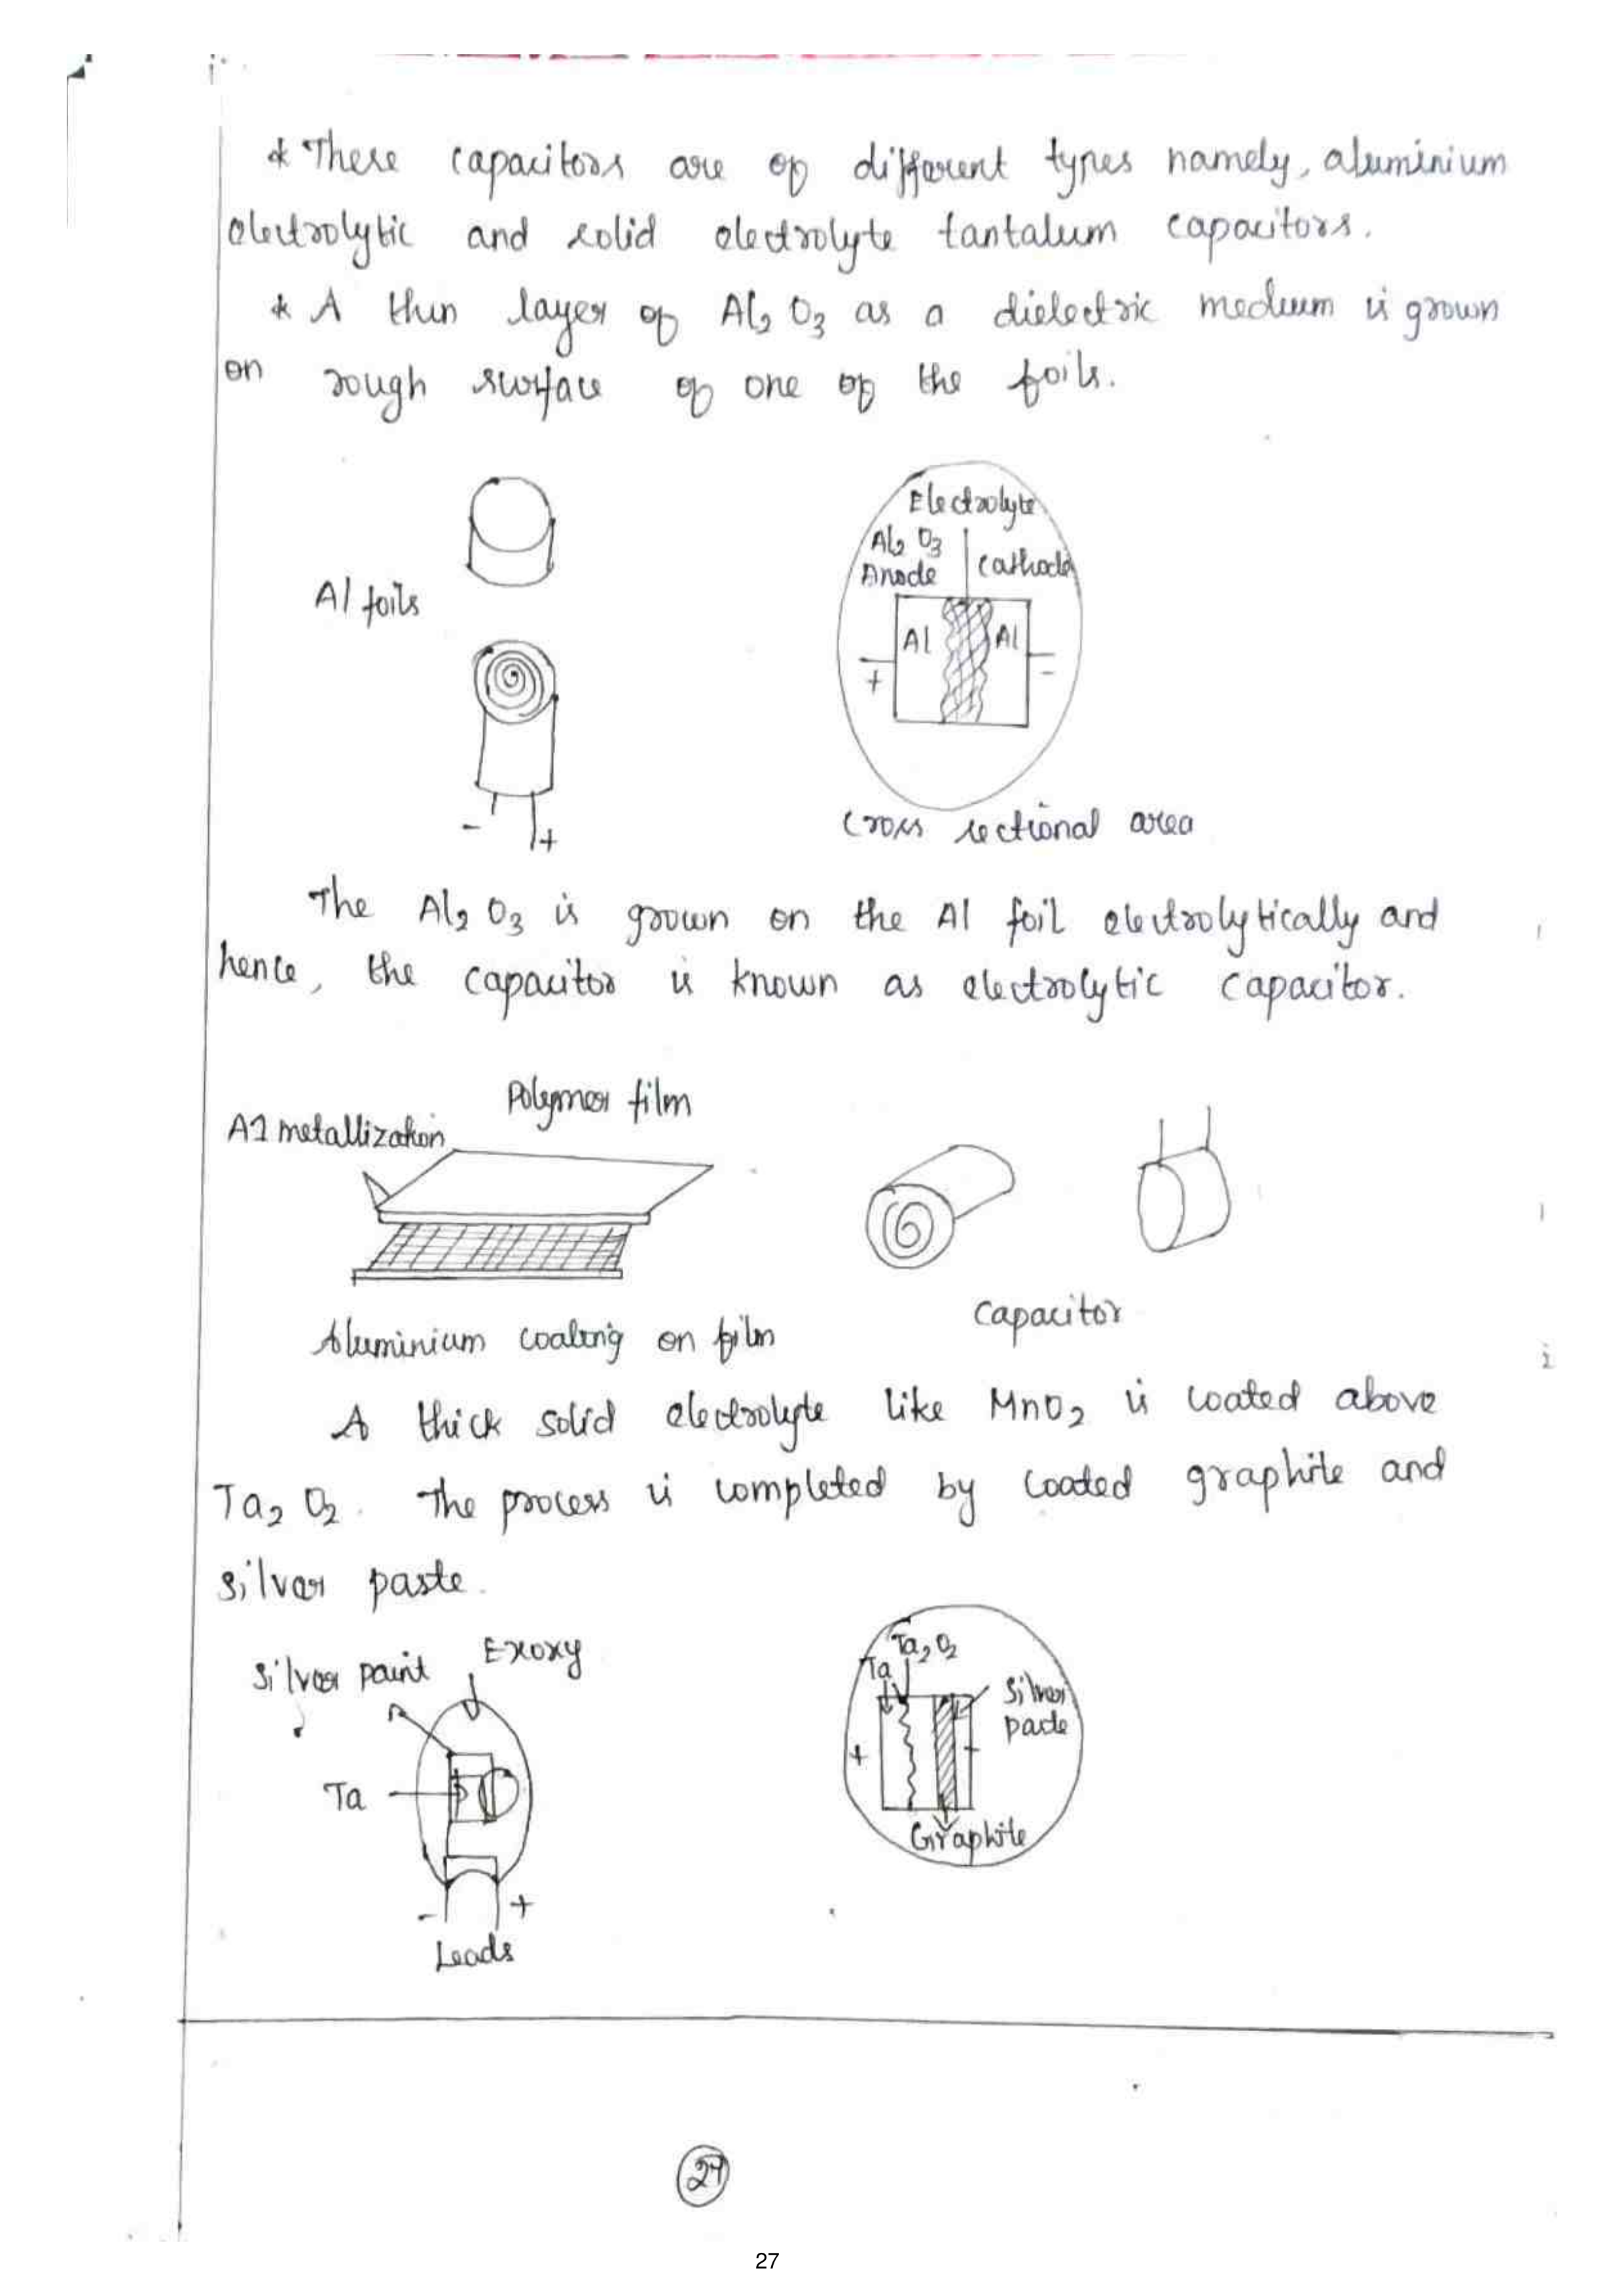 * These capacitors are of different types namely, aluminium
electrolytic and solid electrolyte tantalum capacitors.
* A thin layer of Al2 O3 as a dielectric medium is grown
on rough surface of one of the foils.
Al foils
- +
Electrolyte
Al2 O3
Anode Cathode
Al Al
+ -
Cross sectional area
The Al2 O3 is grown on the Al foil electrolytically and
hence, the capacitor is known as electrolytic capacitor.
Polymer film
Al metallization
Aluminium coating on film
Capacitor
A thick solid electrolyte like MnO2 is coated above
Ta2 O2. The process is completed by coated graphite and
silver paste.
Silver paint
Exoxy
Ta
- +
Leads
Ta2 O2
Ta
Silver
paste
+ -
Graphite
27
27